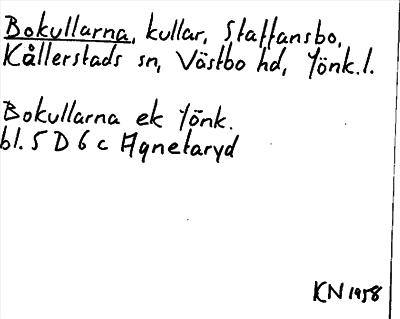 Bokullarna, kullar, Staffansbo,
Kållerstads sn, Västbo hd, Jönk.l.
Bokullarna ek Jönk.
bl. 5 D 6 c Agnetaryd
KN 1958